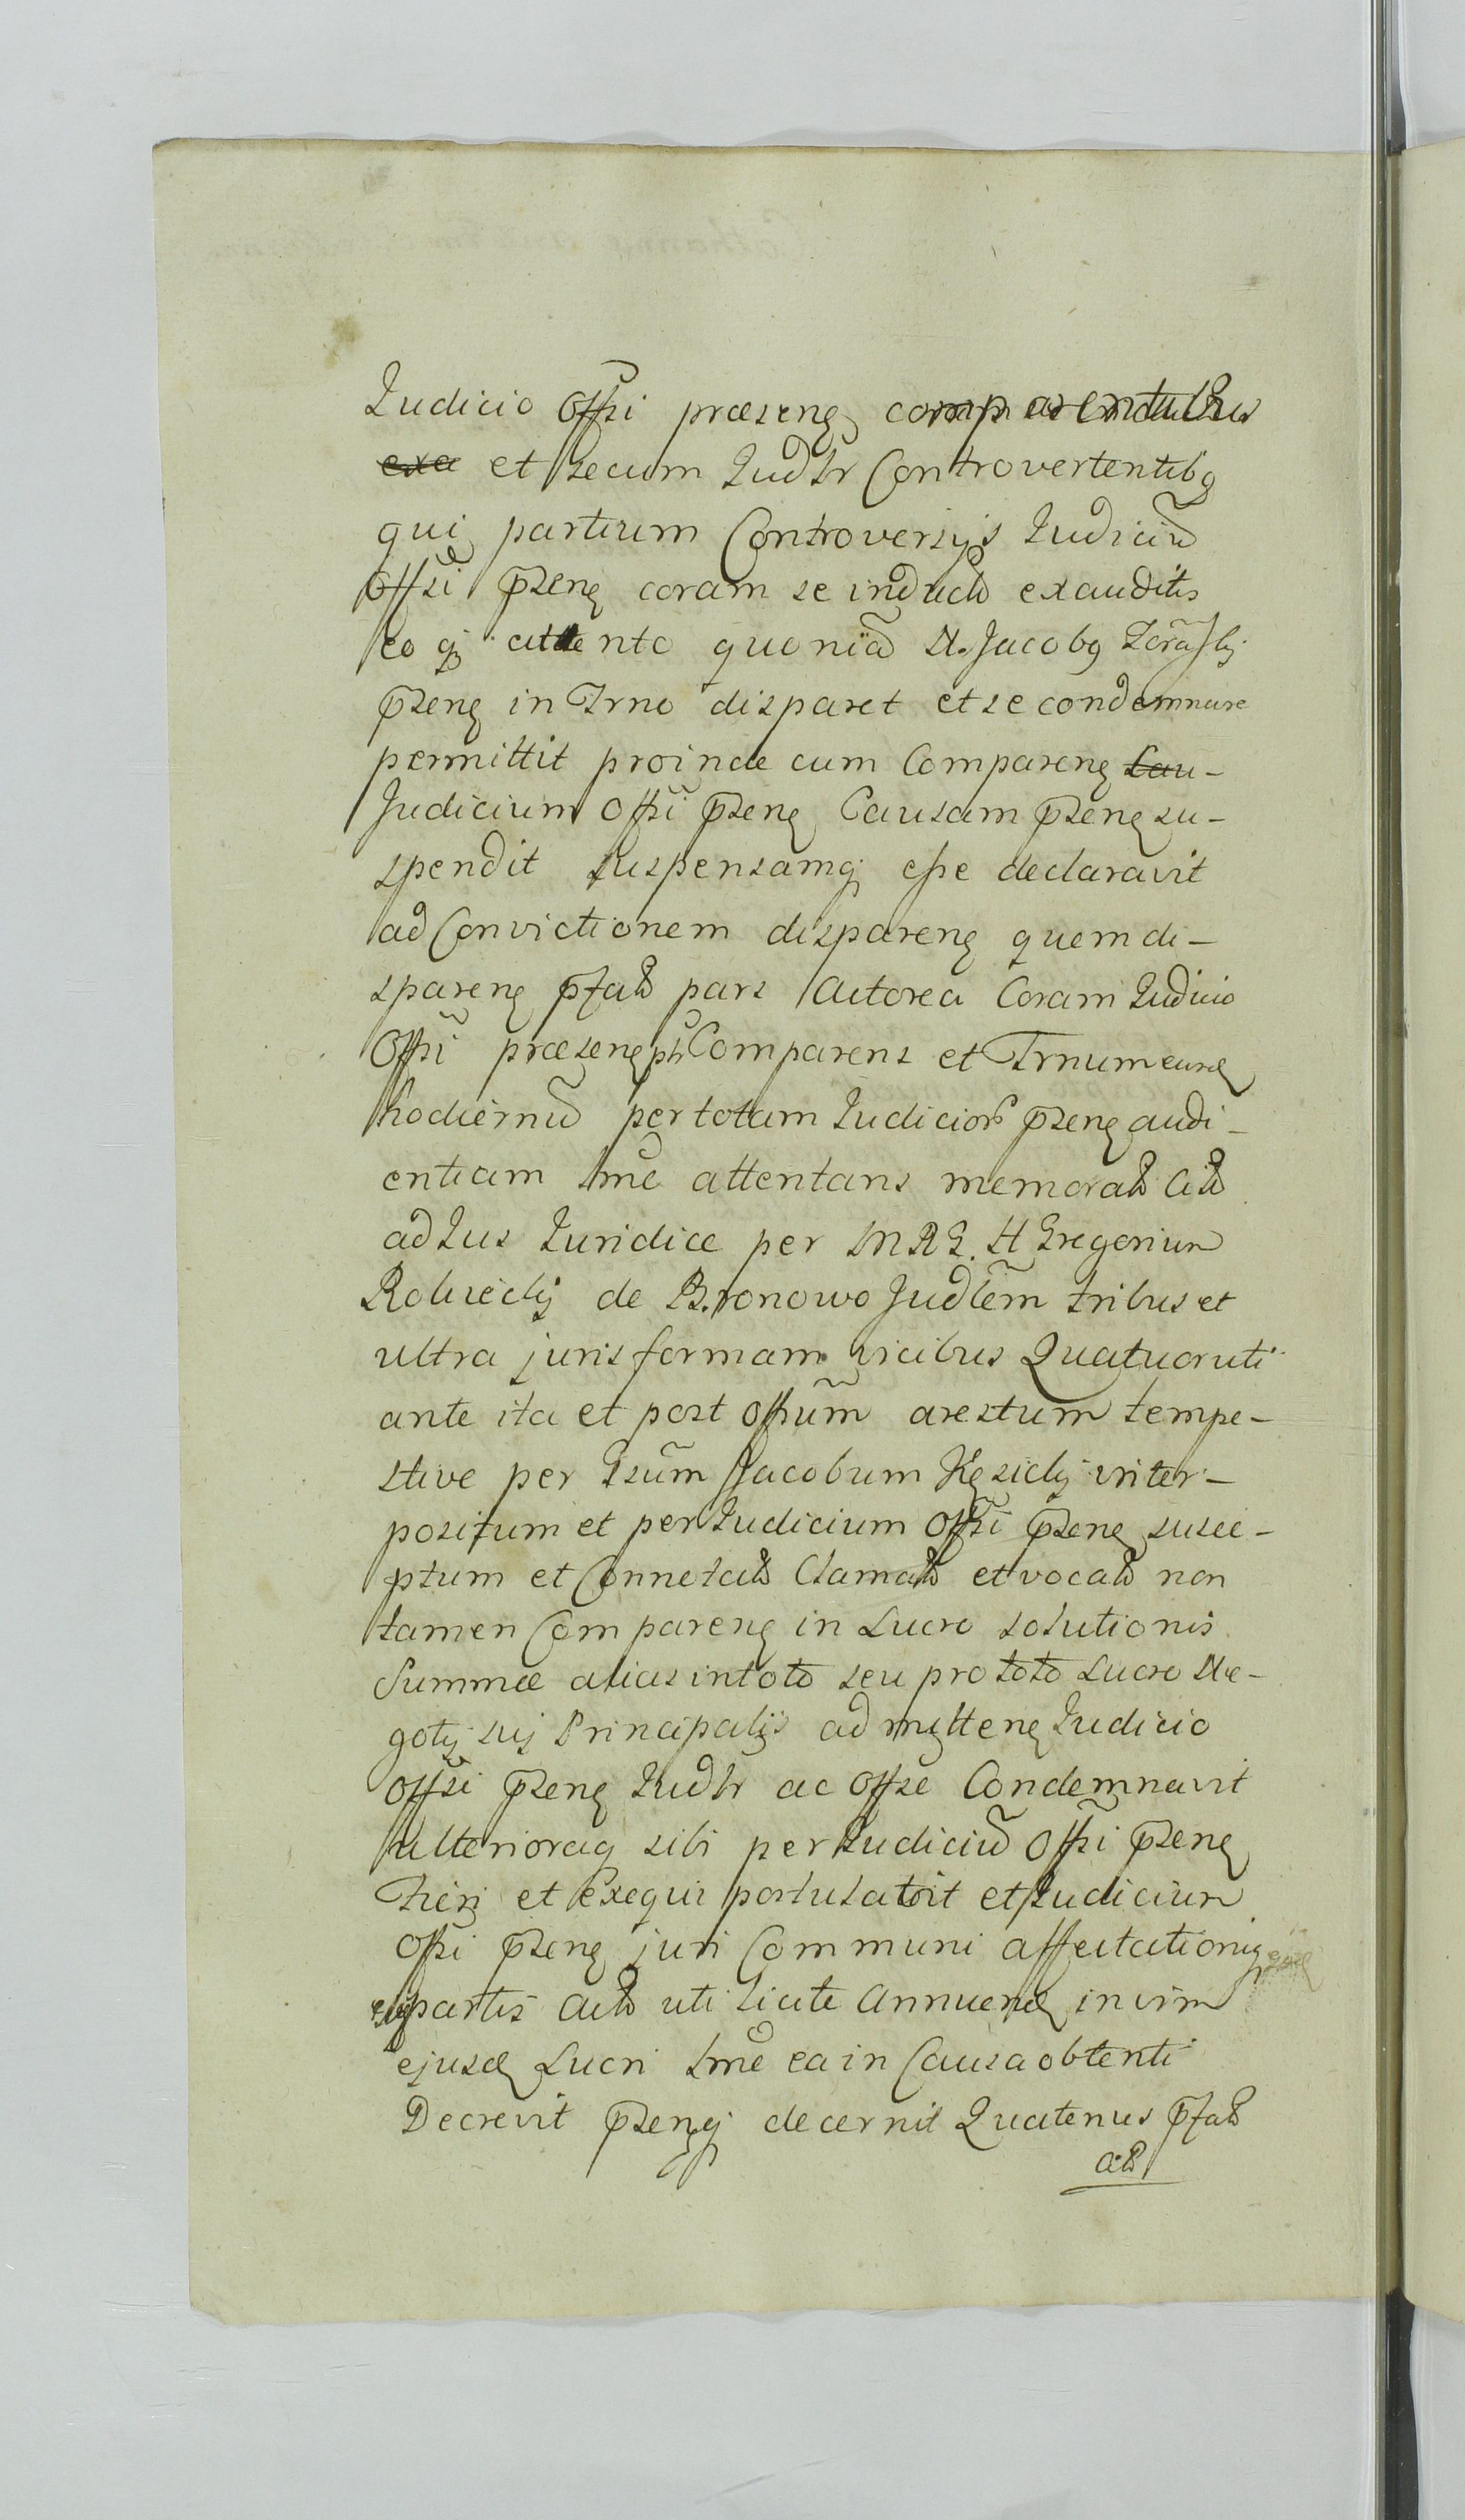 Judicio Offi præseng comparentibus
exa et secum Judlr Controvertentibg
qui partium Controversijs Judiciū
Offi p̄seng coram se inductis exauditis
eo qz attento quoniā N. Jacobg
p̄seng in Trno disparet et se condemnare
permittit proinde cum Compareng Lau-
Judicium Offi p̄seng Causam p̄seng su-
spendit suspensamqz esse declaravit
ad Convictionem dispareng quem di-
spareng p̄fatū pars Actorea Coram Judicio
Offi præseng ph Comparens et Trnum eund
hodiernū per totam Judicior p̄seng audi-
entiam lme attentans memoratū Citū
ad Jus Juridice per MRG. H Gregorium
de Bronowo Judlem tribus et
ultra juris formam vicibus Quatuor uti
ante ita et post Offium arestum tempe-
stive per Gsum Jacobum inter-
positum et per Judicium Offi p̄seng susce-
ptum et Connotatū Clamatū et vocatū non
tamen Compareng in Lucro solutionis
Summæ alias in toto seu pro toto Lucro Ne-
gotij sui Principalis admitteng Judicio
Offi p̄seng Judlr ac Offse Condemnavit
ulterioraqz sibi per Judiciū Offi p̄seng
Fieri et Exequi postulavit et Judicium
Offi p̄seng juri Communi affectationiqz
partis Actū uti licite Annuend in vim
ejusd Lucri lme ea in Causa obtenti
Decrevit p̄sengqz decernit Quatenus p̄fatū
citū